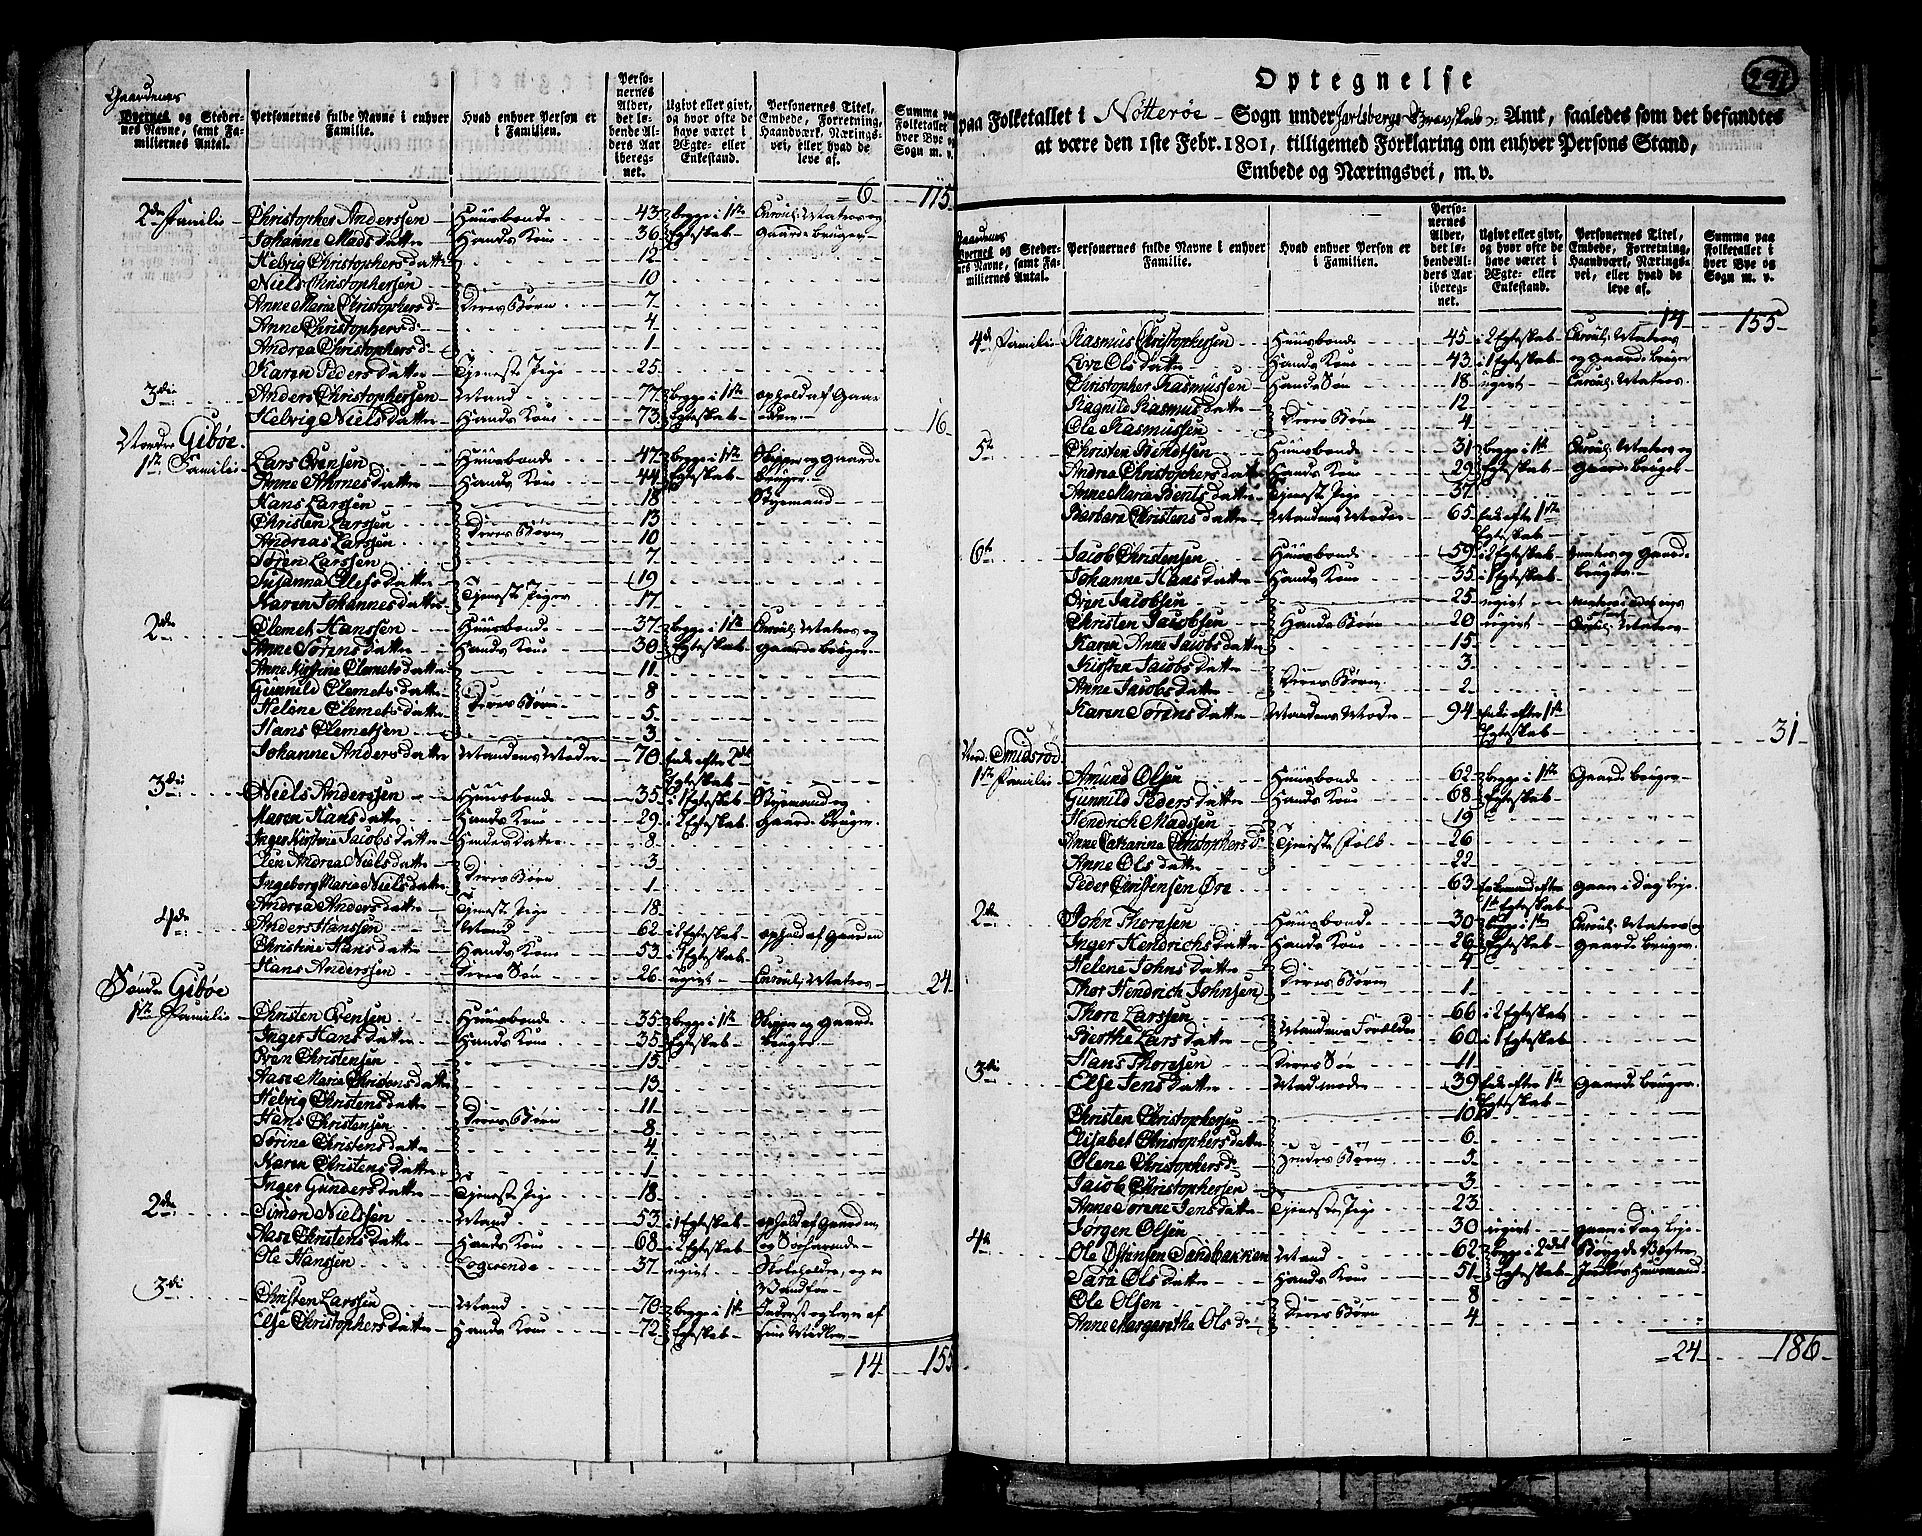 Gaardenes
Byernes og Stedernes Navne, samt Familiernes Antal.
Personernes fulde Navne i enhver Familie.
Hvad enhver Person er i Familien.
Personernes Alder, det løbende Alders Aar iberegnet.
Ugivt eller givt, og hvor ofte de have været i Ægte- eller Enkestand.
Personernes Titel, Embede, Forretning, Haandværk, Næringsvei, eller hvad de leve af.
Summa paa Folketallet i hver Bye og Sogn m. v.
6 115
2de Familie Christopher Anderssen Huusbonde 43 begge i 1te Enroul: Matros og
Johanne Mads datter Hands Kone 36 Egteskab Gaardebruger
Helvig Christophers datter 12
Niels Christophersen 10
Anne Maria Christophers d: Deres Børn 7
Anne Christophers d: 4
Andrea Christophers d: 1
Karen Peders datter Tjeneste Pige 25
3die Anders Christophersen Mand 77 begge i 1te ophold af Gaar
Helvig Niels datter Hands Kone 73 Egteskab den 16
Nordre Gibøe
1te Familie Lars Evensen Huusbonde 47 begge i 1te Skipper og Gaard
Anne Aarnes datter Hands Kone 44 Egteskab bruger
Hans Larssen 18 Styrmand
Christen Larssen 13
Andreas Larssen Deres Børn 10
Søren Larssen 7
Susanna Olefs datter 19
Karen Johannes datter Tjeneste Piger 17
2de Clemet Hanssen Huusbonde 37 begge i 1te Enroul: Matros og
Anne Sørens datter Hands Kone 30 Egteskab gaardebruger
Anne Kirstine Clemets datter 11
Gunnild Clemets datter 8
Helene Clemets datter Deres Børn 5
Hans Clemetsen 3
Johanne Anders datter Mandens Moder 70 Enke efter 2det
Egteskab
3die Niels Anderssen Huusbonde 35 i 1 Egteskab Styrmand og
Maren Hans datter Hands Kone 29 i 2 Egteskab Gaardebruger
Inger Kirstine Jacobs datter Hendes datter 8
Elen Andrea Niels datter 3
Ingeborg Maria Niels datter Deres Børn 1
Andrea Anders datter Tjeneste Pige 18
4de Anders Hanssen Mand 62 i 2 Egteskab ophold af Gaarden
Christine Hans datter Hands Kone 53 i 1 Egteskab
Hans Anderssen Deres Søn 26 ugivt Enroul: Matros 24
Søndre Gibøe
1te Familie Christen Evensen Huusbonde 35 begge i 1te Skipper og Gaard
Inger Hans datter Hands Kone 35 Egteskab bruger
Even Christensen 15
Aase Maria Christens datter 13
Helvig Christens datter 11
Hans Christensen Deres Børn 8
Sørine Christens datter 4
Karen Christens datter 1
Inger Gunders datter Tjeneste Pige 18
2de Simon Nielssen Mand 53 i 1 Egteskab ophold af Gaarden
Aase Christens datter Hands Kone 68 i 2 Egteskab og Søefarende
Ole Hanssen Logerende 37 ugivt
3die Christen Larssen Mand 70 begge i 1te
Else Christophers datter Hands Kone 72 Egteskab sine Midler
14 155
291
Optegnelse
paa Folketallet i Nötterøe Sogn under Jarlsbergs Grevskab Amt, saaledes som det befandtes
at være den 1ste Febr. 1801, tilligemed Forklaring om enhver Persons Stand,
Embede og Næringsvei, m. v.
Gaardenes
Byernes og Stedernes Navne, samt Familiernes Antal.
Personernes fulde Navne i enhver Familie.
Hvad enhver Person er i Familien.
Personernes Alder, det løbende Alders Aar iberegnet.
Ugivt eller givt, og hvor ofte de have været i Ægte- eller Enkestand.
Personernes Titel, Embede, Forretning, Haandværk, Næringsvei, eller hvad de leve af.
Summa paa Folketallet i hver Bye og Sogn m. v.
14 155
4de Familie Rasmus Christophersen Huusbonde 45 i 2 Egteskab Enroul: Matros
Live Ols datter Hands Kone 43 i 1 Egteskab og gaardebruger
Christopher Rasmussen Hands Søn 18 ugivt Enroul: Matros
Ragnild Rasmus datter 12
Ole Rasmussen Deres Børn 4
5te Christen Berndtsen Huusbonde 31 begge i 1te Enroul: Matros og
Andrea Christophers datter Hands Kone 29 Egteskab Gaardebruger
Anne Maria Bents datter Tjeneste Pige 37
Barbara Christens datter Mandens Moder 65 Enke efter 1te
Egteskab
6te Jacob Christensen Huusbonde 59 i 2 Egteskab Matros og Gaard
Johanne Hans datter Hands Kone 35 i 1 Egteskab bruger
Even Jacobsen 25 ugivt
Christen Jacobsen Hands Børn 20 ugivt Enroul: Matros
Karen Anne Jacobs datter 15
Kirsten Jacobs datter 3
Anne Jacobs datter Deres Børn 2
Karen Sørens datter Mandens Moder 94 Enke efter 1te
Egteskab 31
Nord: Smidsrød
1te Familie Amund Olsen Huusbonde 62 begge i 1te Gaardebruger
Gunnild Peders datter Hands Kone 68 Egteskab
Hendrich Madssen 19
Anne Catharina Christophers d: Tjeneste Folk 26
Anne Ols datter 22
Peder Christensen Øra 63 Enkemand efter gaar i Dag leje
1te Egteskab
2de John Thoresen Huusbonde 30 begge i 1te Enroul: Matros og
Inger Hendrichs datter Hands Kone 26 Egteskab Gaardebruger
Helene Johns datter 4
Thor Hendrich Johnsen Deres Børn 1
Thore Larssen 66 i 2 Egteskab
Berthe Lars datter Mandens Forældre 60 i 1 Egteskab
Hans Thoresen Deres Søn 11
3die Else Jens datter Madmoder 39 Enke efter 1te Gaardebruger
Egteskab
Christen Christophersen 10
Elisabet Christophers datter 6
Olena Christophers d: Hendes Børn 5
Jacob Christophersen 3
Anne Sørine Jens datter Tjeneste Pige 23
Jørgen Olsen 30 ugivt gaar i Dag leje
4de Ole Østensen Sandbakken Mand 62 begge i 2det Bøygde Vægter
Sara Ols datter Hands Kone 51 Egteskab Jordløs Huusmand
Ole Olsen 8
Anne Margaretha Ols d: Deres Børn 4
24 186